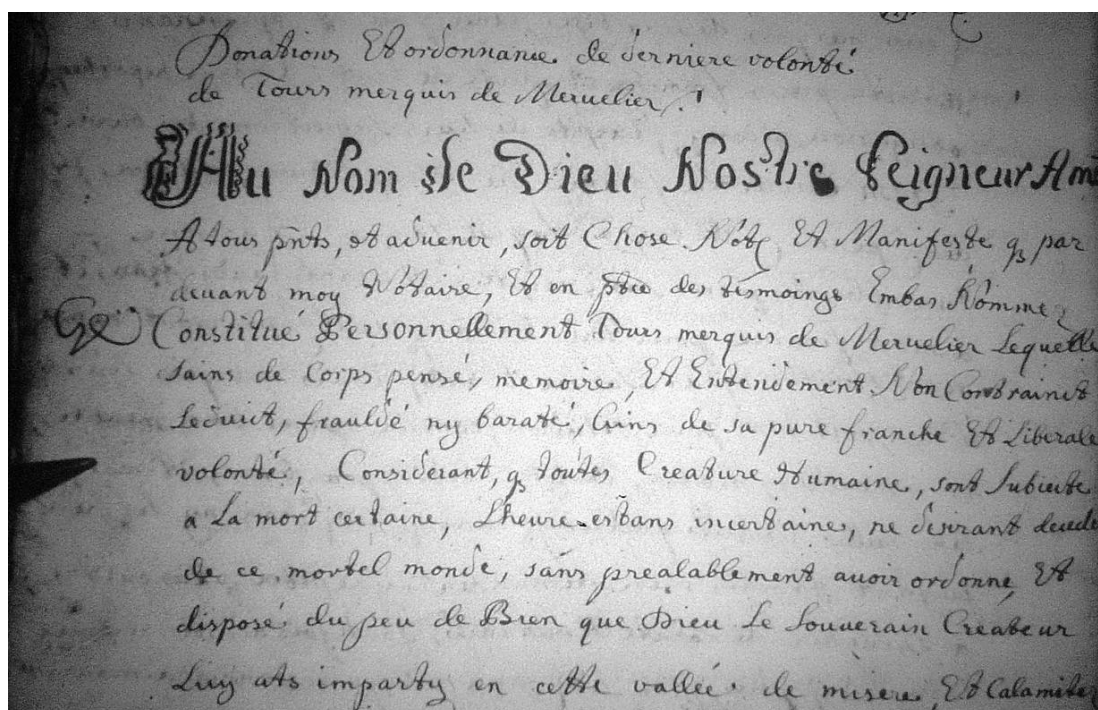 Donations Et ordonnance de derniere volonté
de Tours merquis de Meruelier /.
Au Nom de Dieu Nostre Seigneur Am
A tous pnts, et aduenir, soit Chose Not Et Manifeste q par
deuant moy Notaire, Et en pnce des tesmoings Embas Nommez
Constitué Personnellement Tours merquis de Meruelier Lequelle
sains de Corps pensé, memoire, Et Entendement Non Contrainct
seduict, fraudé ny baraté, Ains de sa pure franche Et Liberale
volonté, Considerant, q toutes Creature Humaine, sont Subiecte
a La mort certaine, Lheure estans incertaine, ne desirant decede
de ce mortel monde, sans prealablement auoir ordonne, Et
disposé du peu de Bien que Dieu Le Souuerain Createur
Luy ats imparty en cette vallée de misere, Et Calamitez